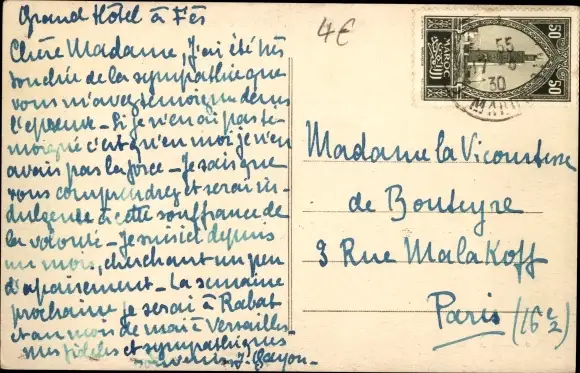 Grand Hôtel à Fès
4€
Chère Madame, J'ai été très
touchée de la sympathie que
vous m'avez témoignée dans
l'épreuve - Si je n'en ai pas té-
moigné c'est qu'en moi je n'en
avais pas la force - Je sais que
vous comprendrez et serai in-
dulgente à cette souffrance de
la volonté - Je suis ici depuis
un mois, cherchant un peu
d'apaisement - La semaine
prochaine je serai à Rabat
et au mois de mai à Versailles -
mes fidèles et sympathiques
souvenirs J.
50
MAROC
50
55
30
MAROC
Madame la Vicomtesse
de Bouteyre
9 Rue Malakoff
Paris (16e)